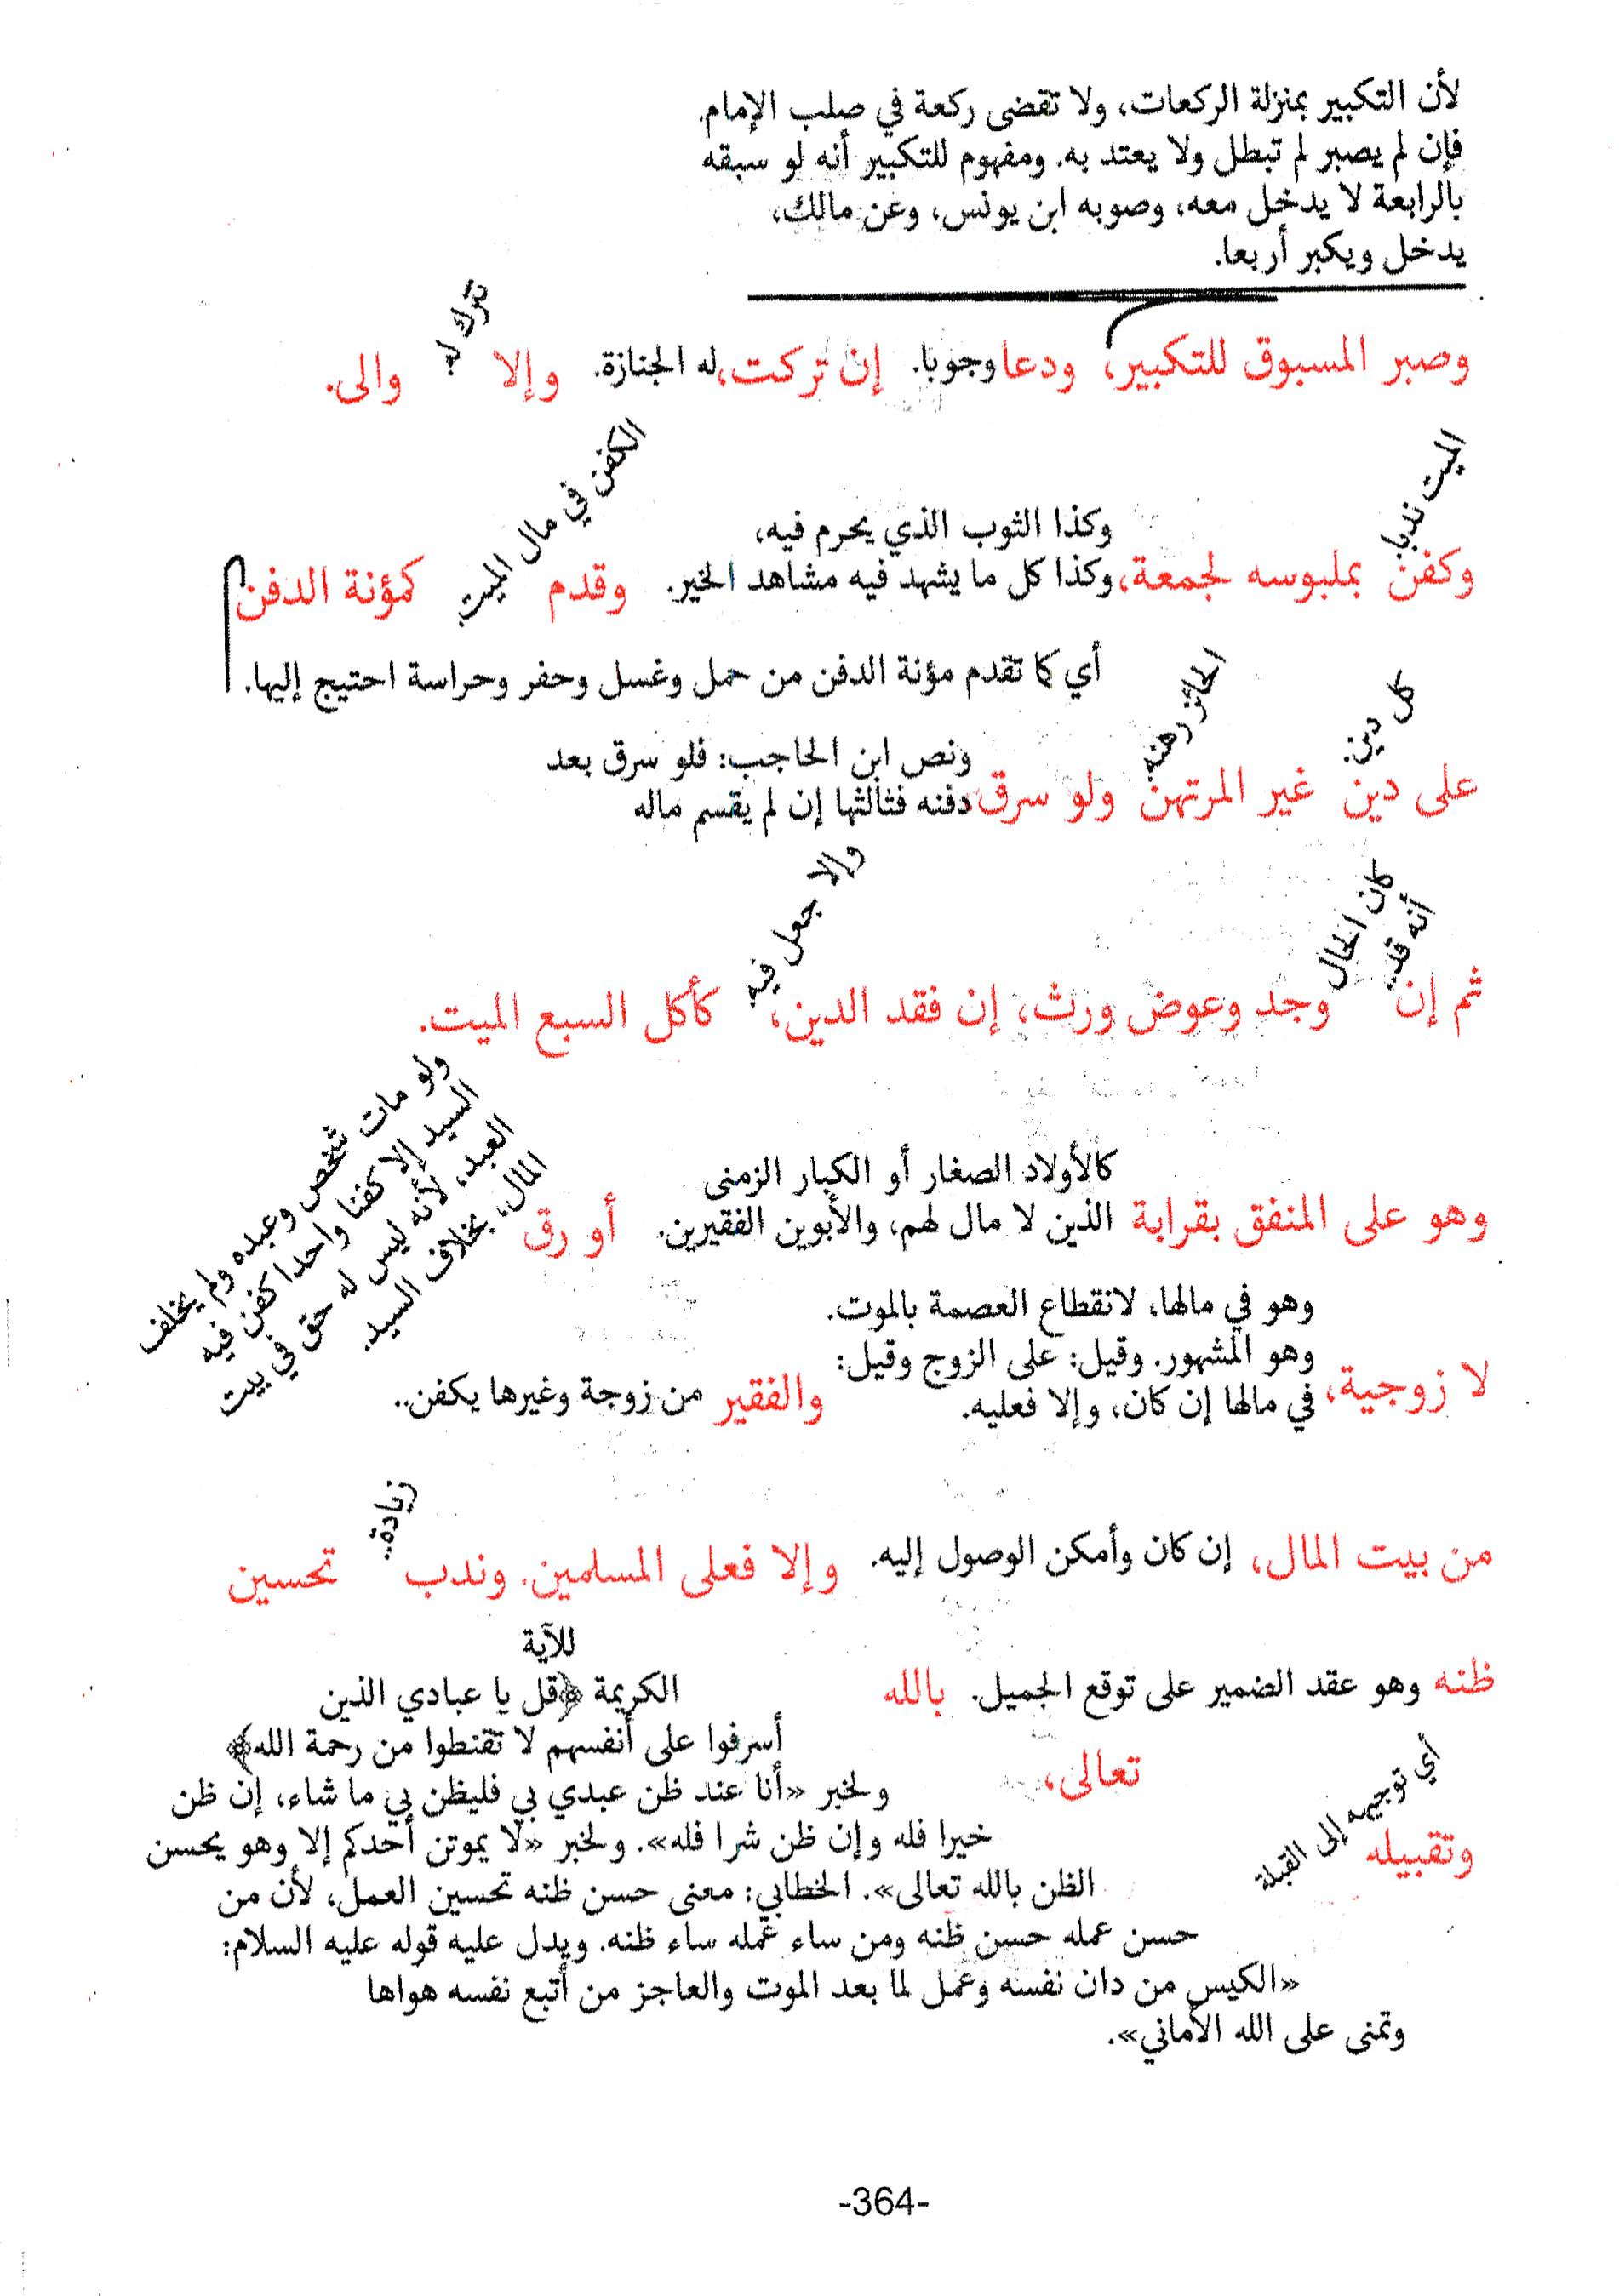 لأن التكبير بمنزلة الركعات، ولا تقضى ركعة في صلب الإمام.
فإن لم يصبر لم تبطل ولا يعتد به. ومفهوم للتكبير أنه لو سبقه
بالرابعة لا يدخل معه، وصوبه ابن يونس، وعن مالك،
يدخل ويكبر أربعا.
وصبر المسبوق للتكبير، ودعا وجوبا. إن تركت، له الجنازة. وإلا تترك له. والى.
الميت ندبا.
وكذا الثوب الذي يحرم فيه،
وكفن بملبوسه لجمعة، وكذا كل ما يشهد فيه مشاهد الخير. وقدم الكفن في مال الميت. كمؤنة الدفن
أي كما تقدم مؤنة الدفن من حمل وغسل وحفر وحراسة احتيج إليها.
كل دين.
الحائز رهنه.
ونص ابن الحاجب: فلو سرق بعد
على دين غير المرتهن ولو سرق دفنه فثالثها إن لم يقسم ماله
كان الحال
أنه قد.
وإلا جعل فيه.
ثم إن وجد وعوض ورث، إن فقد الدين، كأكل السبع الميت.
كالأولاد الصغار أو الكبار الزمنى
وهو على المنفق بقرابة الذين لا مال لهم، والأبوين الفقيرين. أو رق
ولو مات شخص وعبده ولم يخلف
السيد إلا كفنا واحدا كفن فيه
العبد، لأنه ليس له حق في بيت
المال، بخلاف السيد.
وهو في مالها، لانقطاع العصمة بالموت.
وهو المشهور. وقيل: على الزوج وقيل:
لا زوجية، في مالها إن كان، وإلا فعليه. والفقير من زوجة وغيرها يكفن..
من بيت المال، إن كان وأمكن الوصول إليه. وإلا فعلى المسلمين. وندب زيادة.. تحسين
ظنه وهو عقد الضمير على توقع الجميل. بالله
تعالى،
للآية
الكريمة ﴿قل يا عبادي الذين
أسرفوا على أنفسهم لا تقنطوا من رحمة الله﴾
ولخبر «أنا عند ظن عبدي بي فليظن بي ما شاء، إن ظن
خيرا فله وإن ظن شرا فله». ولخبر «لا يموتن أحدكم إلا وهو يحسن
الظن بالله تعالى». الخطابي: معنى حسن ظنه تحسين العمل، لأن من
حسن عمله حسن ظنه ومن ساء عمله ساء ظنه. ويدل عليه قوله عليه السلام:
«الكيس من دان نفسه وعمل لما بعد الموت والعاجز من أتبع نفسه هواها
وتمنى على الله الأماني».
وتقبيله أي توجيهه إلى القبلة
-364-